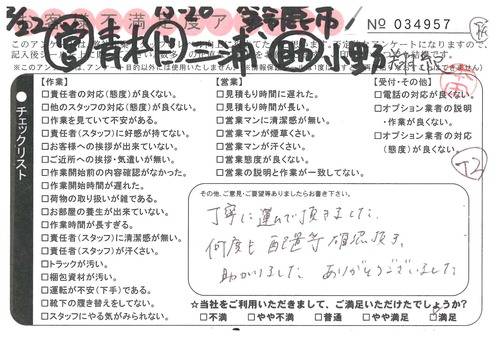 お客様不満足度ア
No 034957
2/22 営 青木 浦 助 小野 鈴鹿市
※このアンケート
【作業】
□責任者の対応(態度)が良くない。
□他のスタッフの対応(態度)が良くない。
□作業を見ていて不安がある。
□責任者(スタッフ)に好感が持てない。
□お客様への挨拶が出来ていない。
□ご近所への挨拶・気遣いが無い。
□作業開始前の内容確認がなかった。
□作業開始時間が遅れた。
□荷物の取り扱いが雑である。
□お部屋の養生が出来ていない。
□作業時間が長すぎる。
□責任者(スタッフ)に清潔感が無い。
□責任者(スタッフ)が汗くさい。
□トラックが汚い。
□梱包資材が汚い。
□運転が不安(下手)である。
□靴下の履き替えをしてない。
□スタッフにやる気がみられない。
【営業】
□見積もり時間に遅れた。
□見積もり時間が長い。
□営業マンに清潔感が無い。
□営業マンが煙草くさい。
□営業マンが汗くさい。
□営業態度が良くない。
□営業の説明と作業が一致してない。
【受付・その他】
□電話の対応が良くない。
□オプション業者の説明
・作業が良くない。
□オプション業者の対応
(態度)が良くない。
T2
チェックリスト
その他、ご意見・ご要望等ありましたらお書き下さい。
丁寧に運んで頂きました。
何度も配置等確認頂き、
助かりました ありがとうございました
☆当社をご利用いただきまして、ご満足いただけたでしょうか?
□不満 □やや不満 □普通 □やや満足 □満足